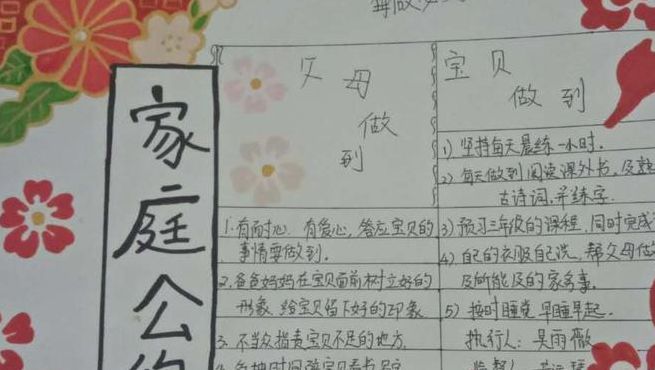 家庭公约
父母
做
到
1.有耐心、有爱心,答应宝贝的
事情要做到.
2.爸爸妈妈在宝贝面前树立好的
形象.给宝贝留下好的印象
3.不当众指责宝贝不足的地方.
宝贝
做到
1)坚持每天晨练一小时.
2)每天做到阅读课外书,及
古诗词,并练字.
3)预习三年级的课程,同时完成
4)自己的衣服自己洗,帮父母做
及所能及的家务事.
5)按时睡觉早睡早起.
执行人:吴雨薇